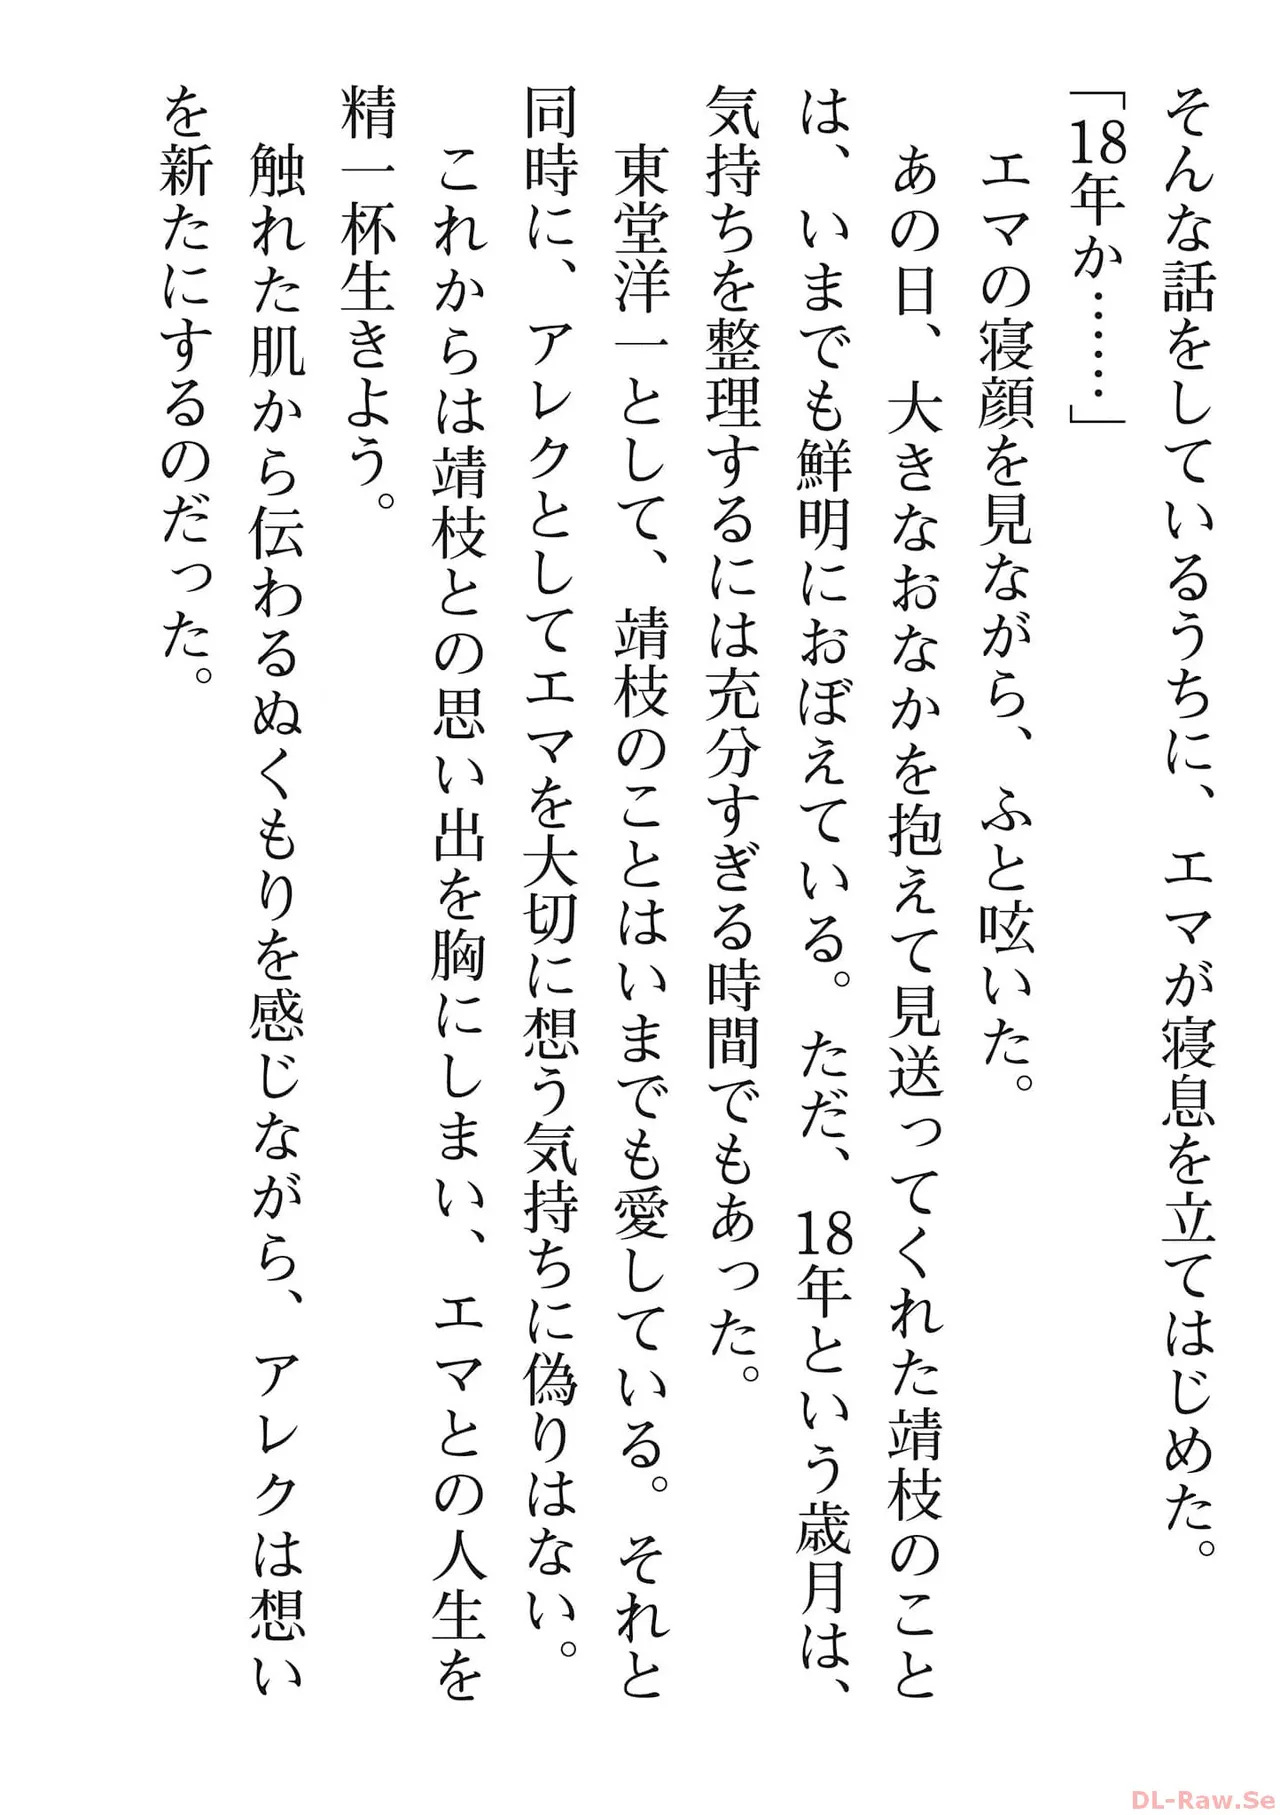 そんな話をしているうちに、エマが寝息を立てはじめた。
「18年か……」
エマの寝顔を見ながら、ふと呟いた。
あの日、大きなおなかを抱えて見送ってくれた靖枝のこと
は、いまでも鮮明におぼえている。ただ、18年という歳月は、
気持ちを整理するには充分すぎる時間でもあった。
東堂洋一として、靖枝のことはいまでも愛している。それと
同時に、アレクとしてエマを大切に想う気持ちに偽りはない。
これからは靖枝との思い出を胸にしまい、エマとの人生を
精一杯生きよう。
触れた肌から伝わるぬくもりを感じながら、アレクは想い
を新たにするのだった。
DL-Raw.Se